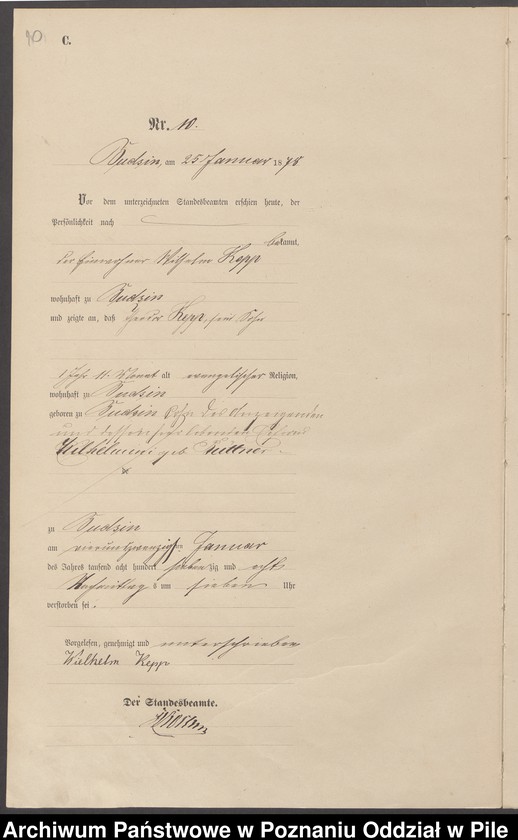 10.
C.
Nr. 10.
Budzin, am 25 Januar 1878
Vor dem unterzeichneten Standesbeamten erschien heute, der
Persönlichkeit nach
bekannt,
der Einwohner Wilhelm Kepp
wohnhaft zu Budzin
und zeigte an, daß Kepp, sein Sohn
1 Jahr 11 Monat alt evangelischer Religion,
wohnhaft zu Budzin
geboren zu Budzin Sohn des Anzeigenden
und dessen lebenden Ehefrau
Wilhelmine geb. Büttner
zu Budzin
am vierundzwanzigsten Januar
des Jahres tausend acht hundert siebenzig und acht
Nachmittag s um sieben Uhr
verstorben sei.
Vorgelesen, genehmigt und unterschrieben
Wielhelm Kepp
Der Standesbeamte.
Archiwum Państwowe w Poznaniu Oddział w Pile